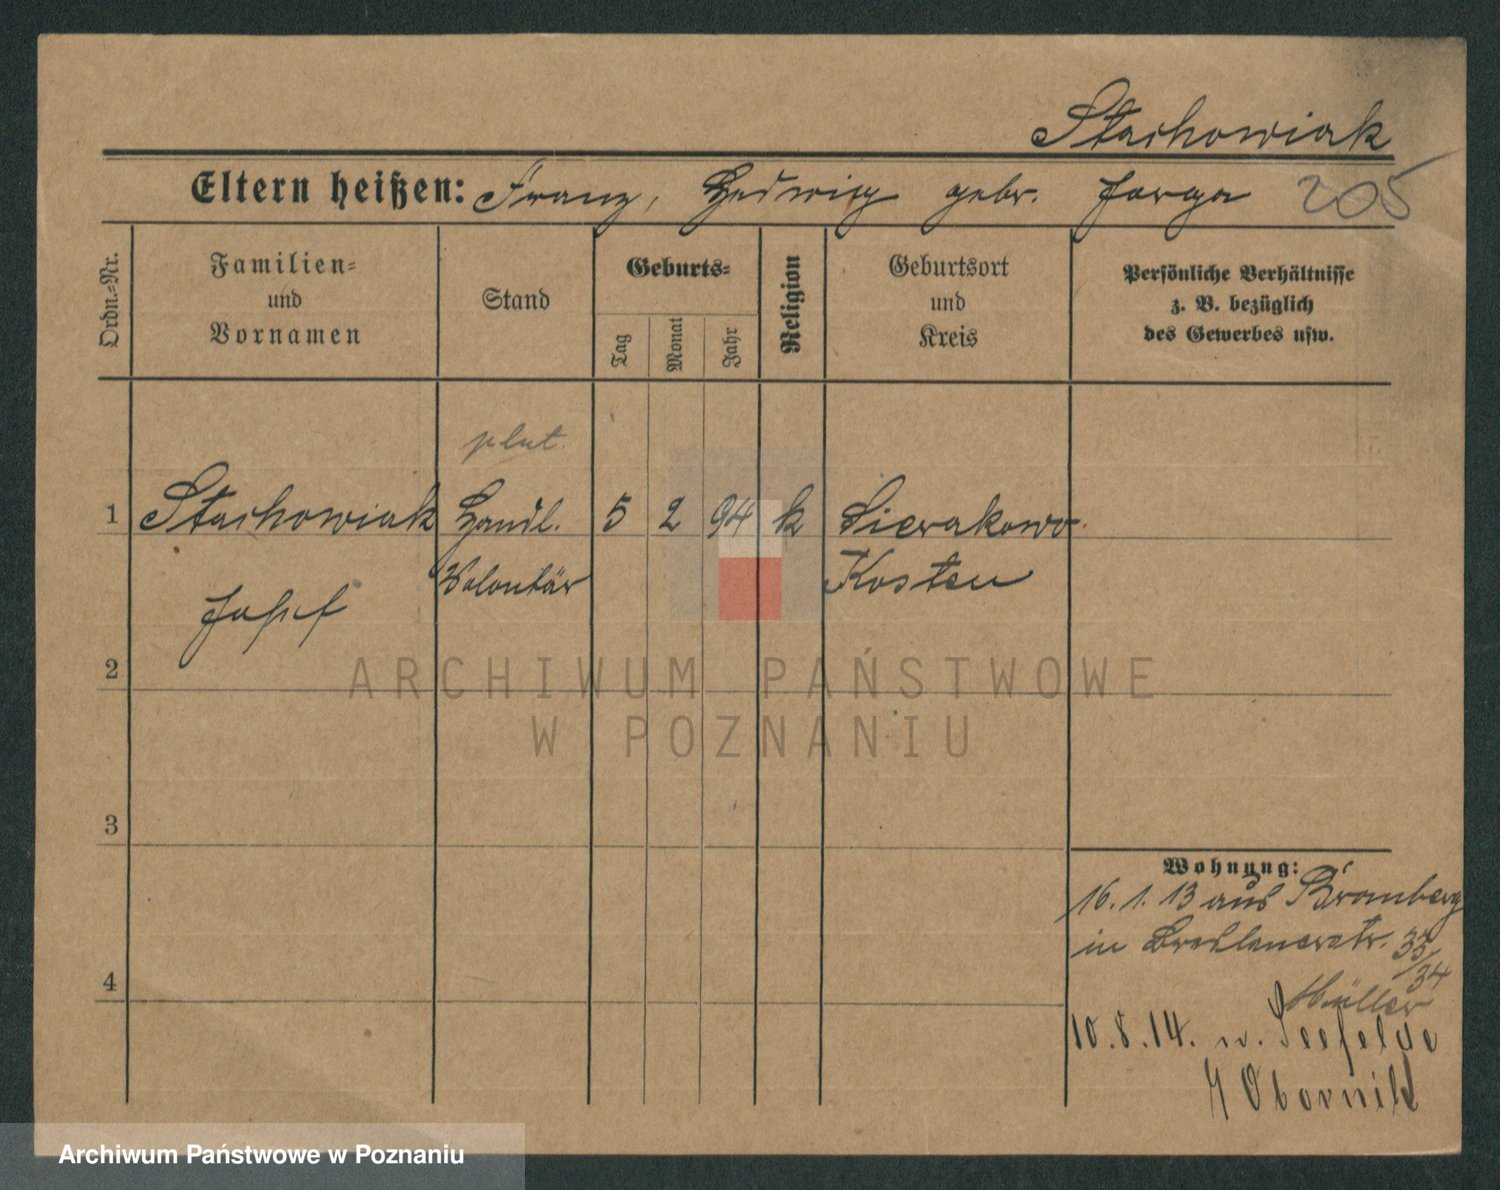 Stachowiak
Eltern heißen: Franz, Hedwig gebr. Jorga 205
Ordn.-Nr.
Familien-
und
Vornamen
Stand
Geburts-
Tag
Monat
Jahr
Religion
Geburtsort
und
Kreis
Persönliche Verhältnisse
z. B. bezüglich
des Gewerbes usw.
1
Stachowiak
Josef
Handl.
Volontär
5 2 94 k
Sierakowo
Kosten
2
3
4
Wohnung:
16.1.13 aus Bromberg
in Breslauerstr. 33/34
Müller
10.8.14. n. Seefelde
Obornik
ARCHIWUM PAŃSTWOWE
W POZNANIU
Archiwum Państwowe w Poznaniu